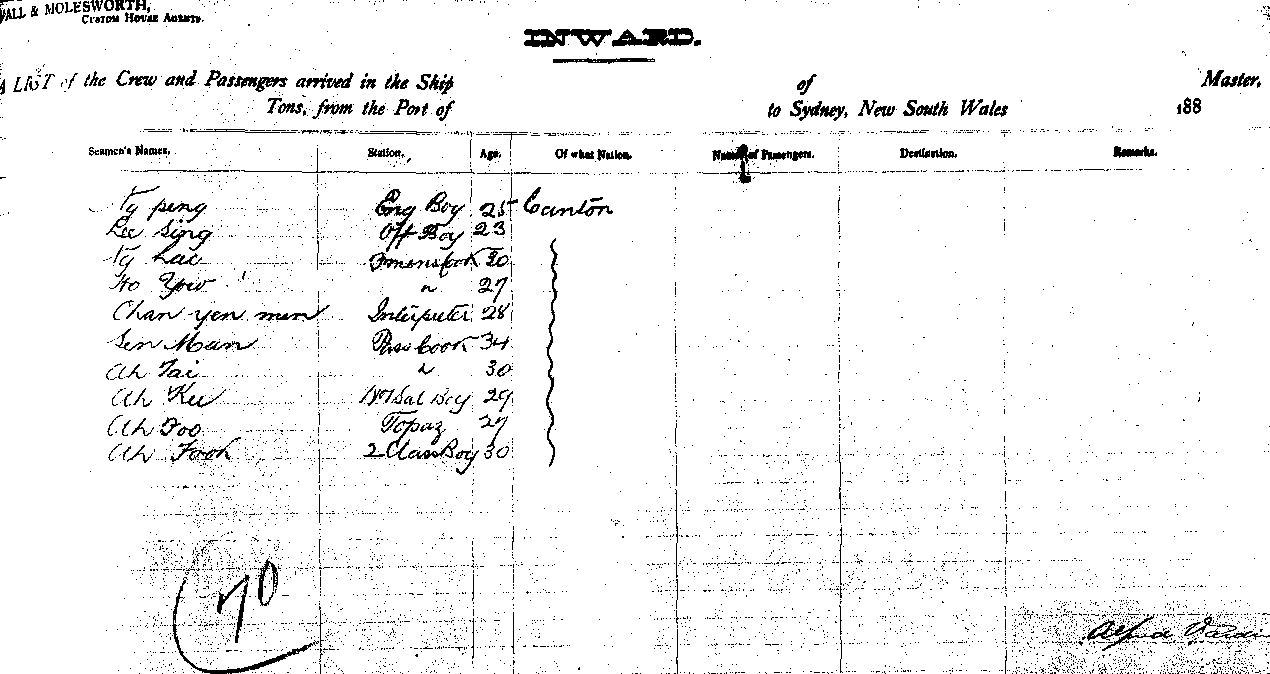 WALL & MOLESWORTH,
CUSTOM HOUSE AGENTS.
INWARD.
A LIST of the Crew and Passengers arrived in the Ship of Master,
Tons, from the Port of to Sydney, New South Wales 188
Seamen's Names. Station. Age. Of what Nation. Names of Passengers. Destination. Remarks.
Ty peng Eng Boy 25 Canton
Lee Sing Off Boy 23
Ty 30
Ho Yow " 27
Chan yen men Interpeter 28
Sen Man Pass Cook 34
Ah Tai " 30
Ah Kee Sal Boy 29
Ah Foo Topaz 27
Ah Fook 2 Class Boy 30
70
Alfred